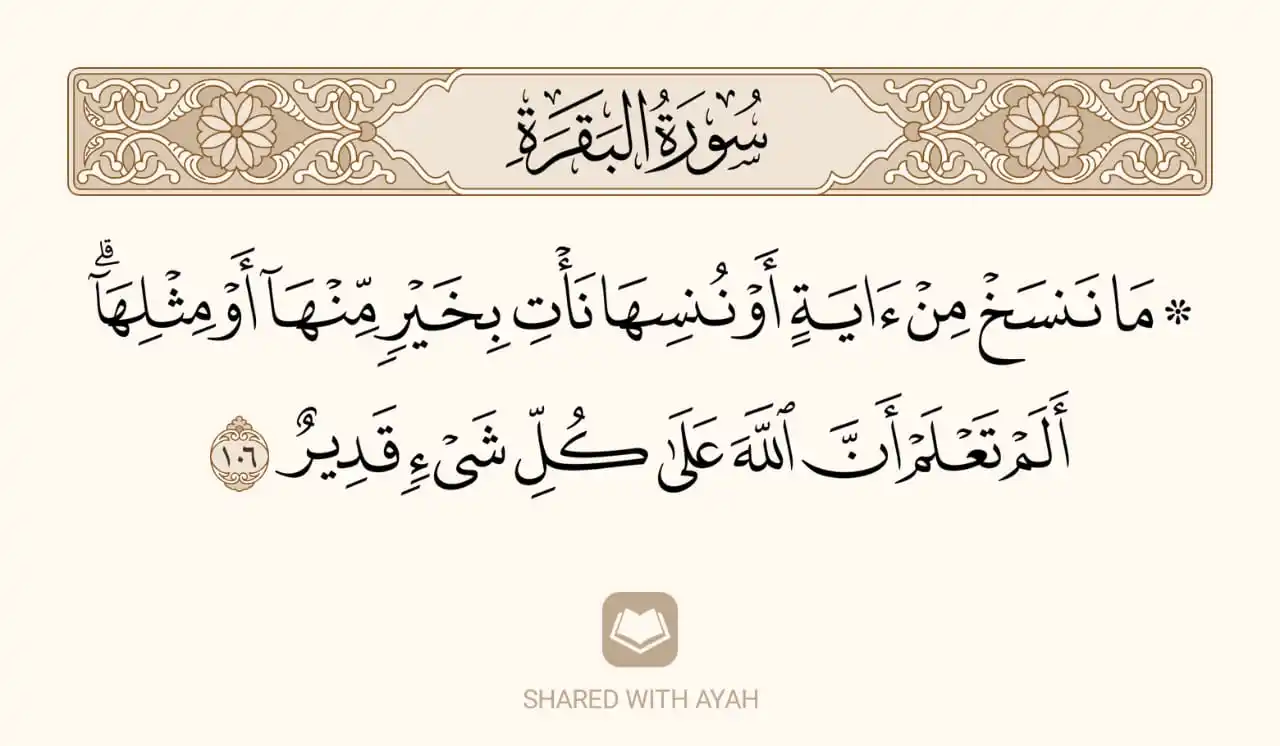 سُورَةُ البَقَرَةِ
۞ مَا نَنسَخۡ مِنۡ ءَايَةٍ أَوۡ نُنسِهَا نَأۡتِ بِخَيۡرٖ مِّنۡهَآ أَوۡ مِثۡلِهَآۗ
أَلَمۡ تَعۡلَمۡ أَنَّ ٱللَّهَ عَلَىٰ كُلِّ شَيۡءٖ قَدِيرٌ ١٠٦
SHARED WITH AYAH